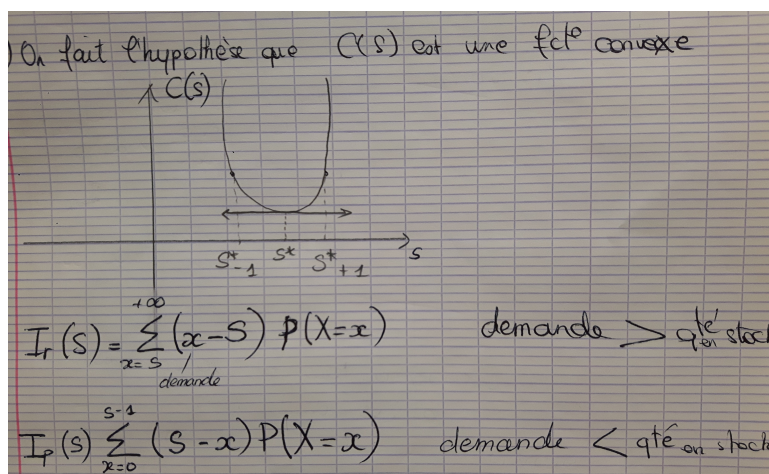 ) On fait l'hypothèse que C(S) est une fct° convexe
C(S)
S*-1 S* S*+1 S
Ir(S) = +∞ Σ x=S (x-S) P(X=x) demande > qté en stock
demande
Ip(S) S-1 Σ x=0 (S-x) P(X=x) demande < qté en stock